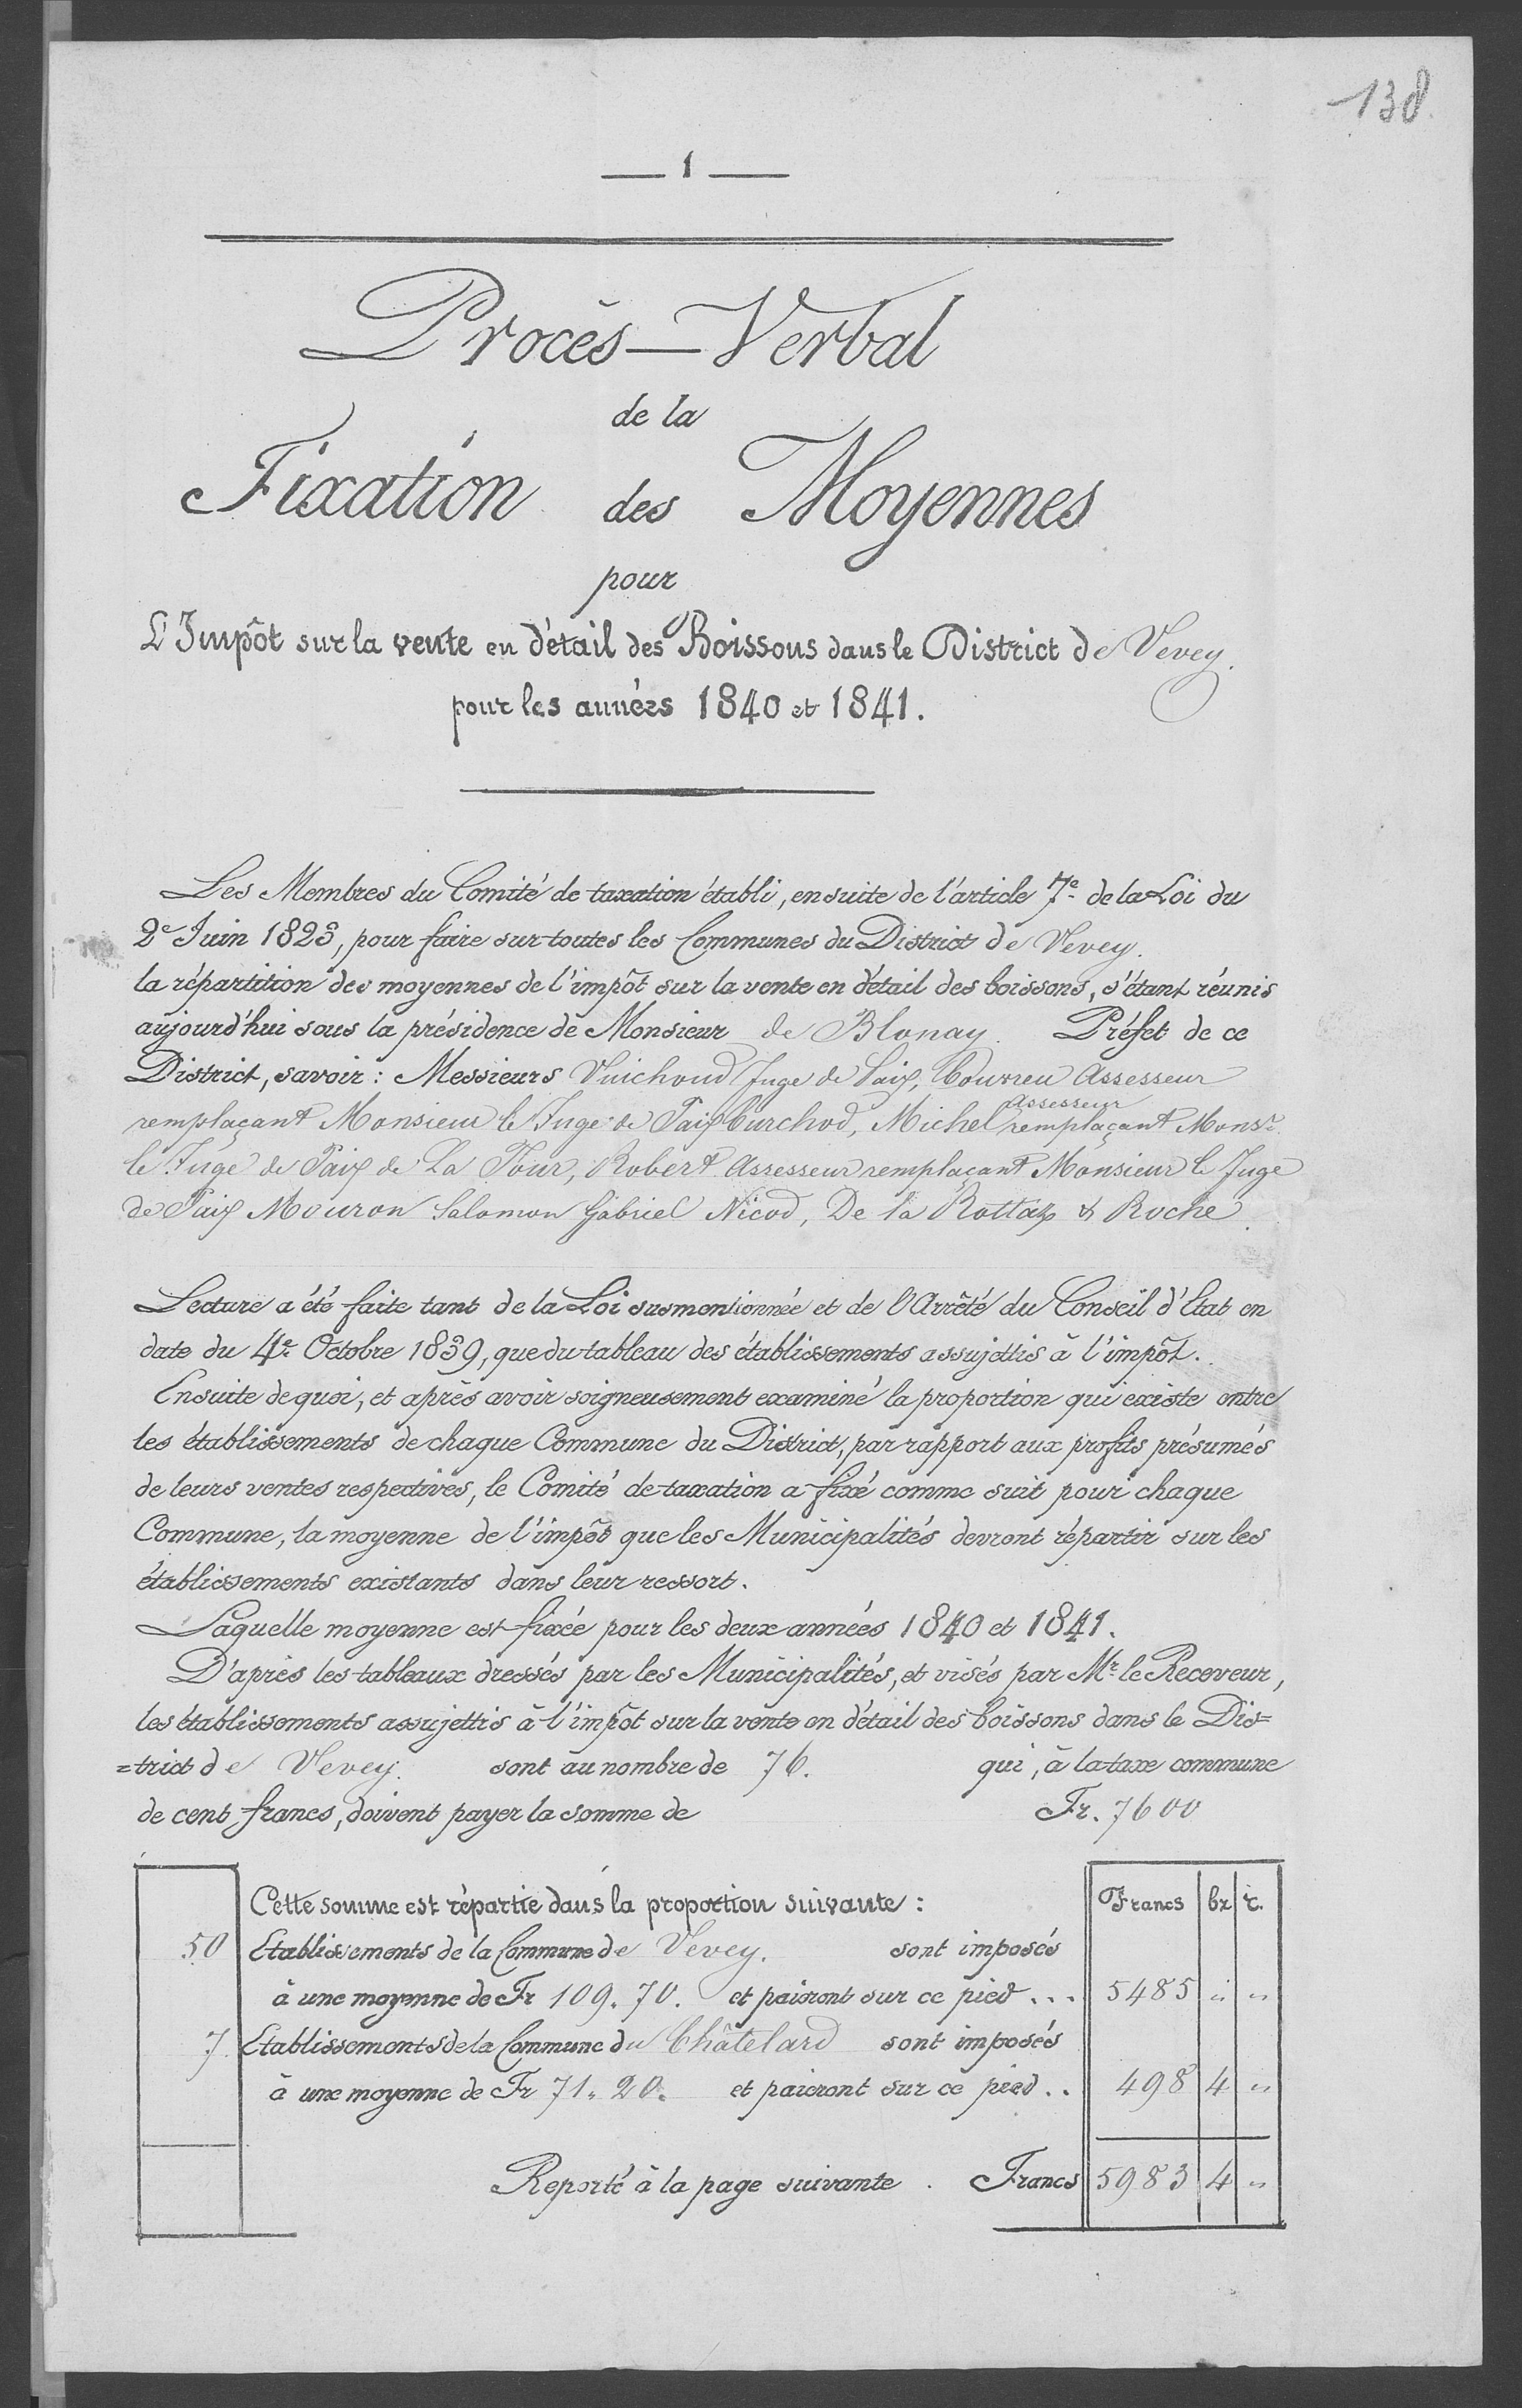 138
— 1 —
Procès-Verbal
de la
Fixation des Moyennes
pour
L'Impôt sur la vente en détail des Boissons dans le District de Vevey.
pour les années 1840 et 1841.
Les Membres du Comité de taxation établi, ensuite de l'article 7e de la Loi du
2e Juin 1823, pour faire sur toutes les Communes du District de Vevey.
la répartition des moyennes de l'impôt sur la vente en détail des boissons, s'étant réunis
aujourd'hui sous la présidence de Monsieur de Blonay. Préfet de ce
District, savoir : Messieurs Vuichoud Juge de Paix, Couvreu Assesseur
remplaçant Monsieur le Juge de Paix Curchod, Michel Assesseur remplaçant Monsr
le Juge de Paix de La Tour, Robert Assesseur remplaçant Monsieur le Juge
de Paix Mouron Salomon Gabriel Nicod, De la Rottaz & Roche.
Lecture a été faite tant de la Loi susmentionnée et de l'Arrêté du Conseil d'Etat en
date du 4e Octobre 1839, que du tableau des établissements assujettis à l'impôt.
Ensuite de quoi, et après avoir soigneusement examiné la proportion qui existe entre
les établissements de chaque Commune du District, par rapport aux profits présumés
de leurs ventes respectives, le Comité de taxation a fixé comme suit pour chaque
Commune, la moyenne de l'impôt que les Municipalités devront répartir sur les
établissements existants dans leur ressort.
Laquelle moyenne est fixée pour les deux années 1840 et 1841.
D'après les tableaux dressés par les Municipalités, et visés par Mr. le Receveur,
les établissements assujettis à l'impôt sur la vente en détail des boissons dans le Dis=
=trict de Vevey. sont au nombre de 76. qui, à la taxe commune
de cent francs, doivent payer la somme de Fr. 7600
Cette somme est répartie dans la proportion suivante : Francs bz r.
50 Etablissements de la Commune de Vevey. sont imposés
à une moyenne de Fr 109. 70. et paieront sur ce pied ... 5485 " "
7. Etablissements de la Commune du Châtelard sont imposés
à une moyenne de Fr 71. 20. et paieront sur ce pied .. 498 4 "
Reporté à la page suivante . Francs 5983 4 "